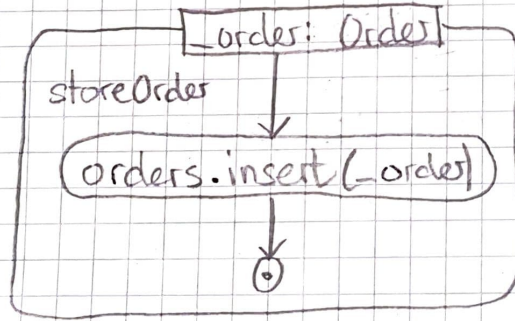 _order: Order
storeOrder
orders.insert(_order)